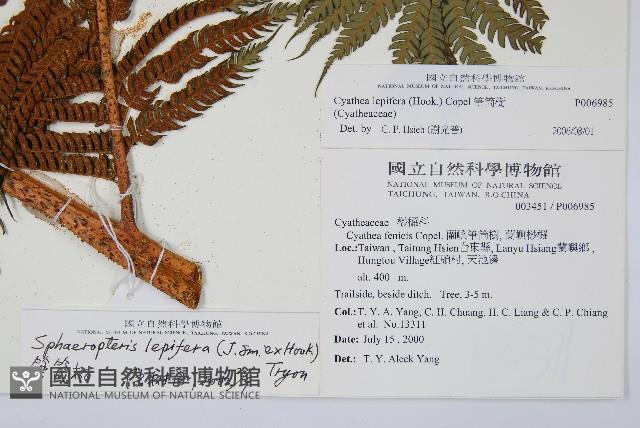 國立自然科學博物館
NATIONAL MUSEUM OF NATURAL SCIENCE, TAICHUNG, TAIWAN, R.O.CHINA
Cyathea lepifera (Hook.) Copel 筆筒樹 P006985
(Cyatheaceae)
Det. by C. P. Hsieh 2006/08/01
國立自然科學博物館
NATIONAL MUSEUM OF NATURAL SCIENCE
TAICHUNG, TAIWAN, R.O.CHINA
003451 / P006985
Cyatheaceae 桫欏科
Cyathea fenicis Copel. 蘭嶼筆筒樹, 蘭嶼桫欏
Loc.: Taiwan , Taitung Hsien台東縣, Lanyu Hsiang蘭嶼鄉 ,
Hungtou Village紅頭村, 天池邊
alt. 400 m.
Trailside, beside ditch. Tree, 3-5 m.
Col.: T. Y. A. Yang, C. H. Chuang, H. C. Liang & C. P. Chiang
et al. No.13311
Date: July 15 , 2000
Det.: T. Y. Aleck Yang
國立自然科學博物館
NATIONAL MUSEUM OF NATURAL SCIENCE, TAICHUNG, TAIWAN, R.O.CHINA
Sphaeropteris lepifera (J. Sm. ex Hook)
Tryon
國立自然科學博物館
NATIONAL MUSEUM OF NATURAL SCIENCE